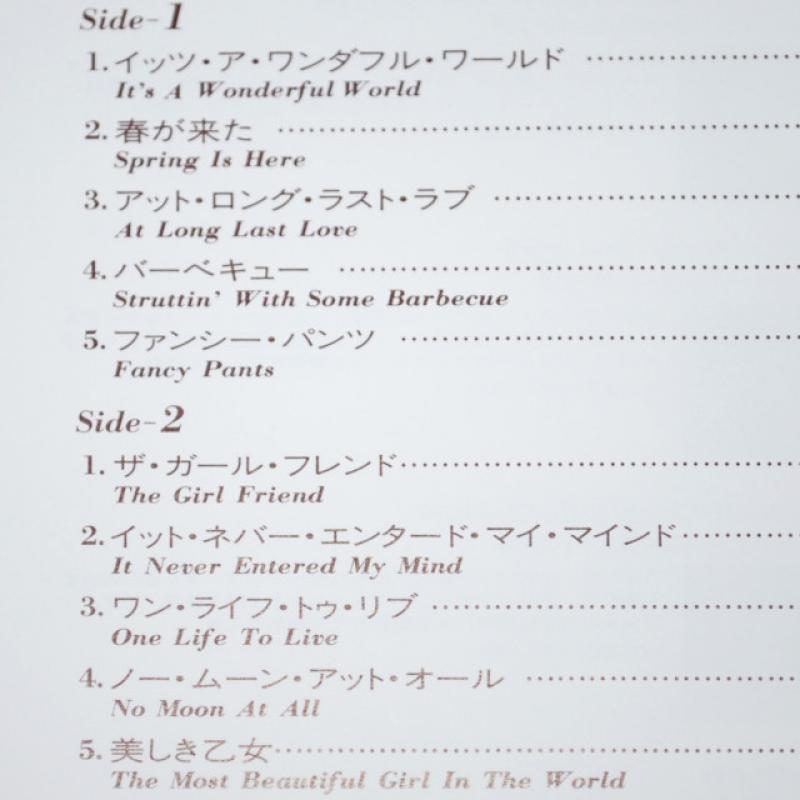 Side-1
1. イッツ・ア・ワンダフル・ワールド
It's A Wonderful World
2. 春が来た
Spring Is Here
3. アット・ロング・ラスト・ラブ
At Long Last Love
4. バーベキュー
Struttin' With Some Barbecue
5. ファンシー・パンツ
Fancy Pants
Side-2
1. ザ・ガール・フレンド
The Girl Friend
2. イット・ネバー・エンタード・マイ・マインド
It Never Entered My Mind
3. ワン・ライフ・トゥ・リブ
One Life To Live
4. ノー・ムーン・アット・オール
No Moon At All
5. 美しき乙女
The Most Beautiful Girl In The World